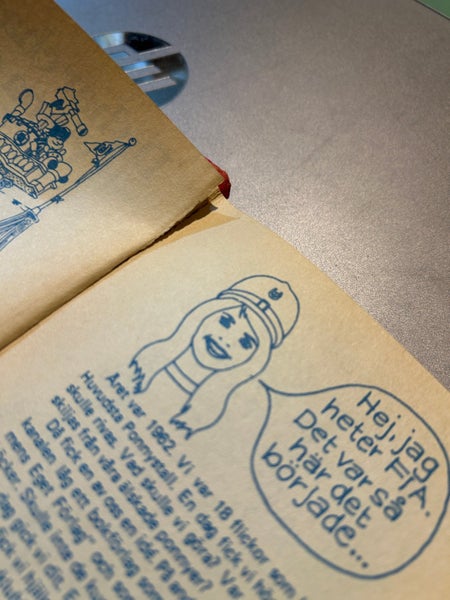 Hej, jag
heter FIA.
Det var så
här det
började...
Året var 1962. Vi var 18 flickor som
Huvudsta Ponnystall. En dag fick vi hö
skulle rivas. Vad skulle vi göra? Var
skiljas från våra älskade ponnyer?
Då fick en av oss en idé. På and
kanalen låg ett bokförlag som
mens Eget Förlag" och som